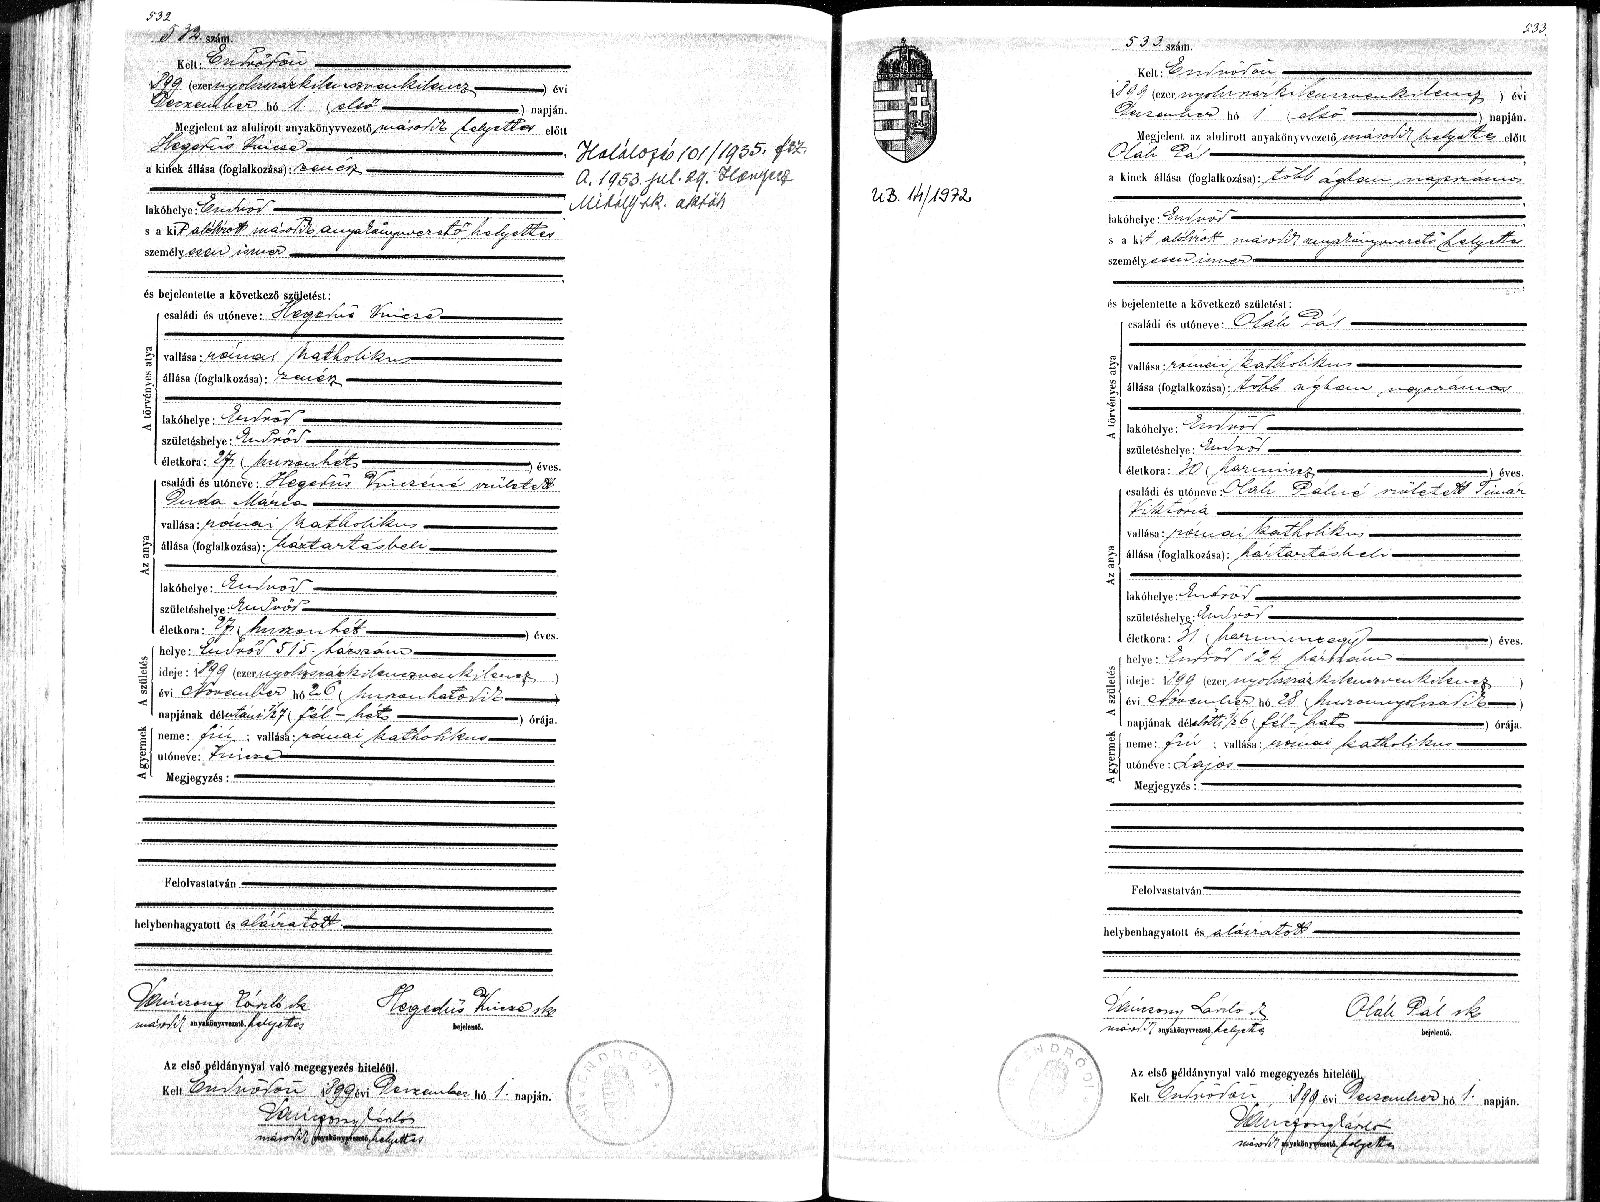 532
532. szám.
Kelt: Endrődön
1899 (ezernyolczszázkilenczvenkilencz) évi
Deczember hó 1 (első) napján.
Megjelent az alulirott anyakönyvvezető második helyettes előtt
Hegedűs Vincze
a kinek állása (foglalkozása): zenész
lakóhelye: Endrőd
s a kit alólirott második anyakönyvvezető helyettes
személyesen ismer
és bejelentette a következő születést:
A törvényes atya
családi és utóneve: Hegedűs Vincze
vallása: római katholikus
állása (foglalkozása): zenész
lakóhelye: Endrőd
születéshelye: Endrőd
életkora: 27 (huszonhét) éves.
Az anya
családi és utóneve: Hegedűs Vinczéné született
Duda Mária
vallása: római katholikus
állása (foglalkozása): háztartásbeli
lakóhelye: Endrőd
születéshelye: Endrőd
életkora: 27 (huszonhét) éves.
A születés
helye: Endrőd 515 házszám
ideje: 1899 (ezernyolczszázkilenczvenkilencz)
évi November hó 26 (huszonhatodik)
napjának délutáni 1/27 (fél-hét) órája.
A gyermek
neme: fiú; vallása: római katholikus
utóneve: Vincze
Megjegyzés:
Felolvastatván
helybenhagyatott és aláiratott
Hegedűs Vincze sk
második anyakönyvvezető helyettes
bejelentő.
Az első példánynyal való megegyezés hiteléül.
Kelt Endrődön 1899 évi Deczember hó 1. napján.
második anyakönyvvezető helyettes
Halálozás 101/1935.
A. 1953. jul. 29.
Mihály
ENDRŐDI
533
533. szám.
Kelt: Endrődön
1899 (ezernyolczszázkilenczvenkilencz) évi
Deczember hó 1 (első) napján.
Megjelent az alulirott anyakönyvvezető második helyettes előtt
Oláh Pál
a kinek állása (foglalkozása): több ágban napszámos
lakóhelye: Endrőd
s a kit alólirott második anyakönyvvezető helyettes
személyesen ismer
és bejelentette a következő születést:
A törvényes atya
családi és utóneve: Oláh Pál
vallása: római katholikus
állása (foglalkozása): több ágban napszámos
lakóhelye: Endrőd
születéshelye: Endrőd
életkora: 30 (harmincz) éves.
Az anya
családi és utóneve: Oláh Pálné született Timár
Viktória
vallása: római katholikus
állása (foglalkozása): háztartásbeli
lakóhelye: Endrőd
születéshelye: Endrőd
életkora: 31 (harminczegy) éves.
A születés
helye: Endrőd 124 házszám
ideje: 1899 (ezernyolczszázkilenczvenkilencz)
évi November hó 28 (huszonnyolczadik)
napjának délelőtti 1/26 (fél-hat) órája.
A gyermek
neme: fiú; vallása: római katholikus
utóneve: Lajos
Megjegyzés:
Felolvastatván
helybenhagyatott és aláiratott
László sk Oláh Pál sk
második anyakönyvvezető helyettes
bejelentő.
Az első példánynyal való megegyezés hiteléül.
Kelt Endrődön 1899 évi Deczember hó 1. napján.
második anyakönyvvezető helyettes
UB. 14/1972
ENDRŐDI